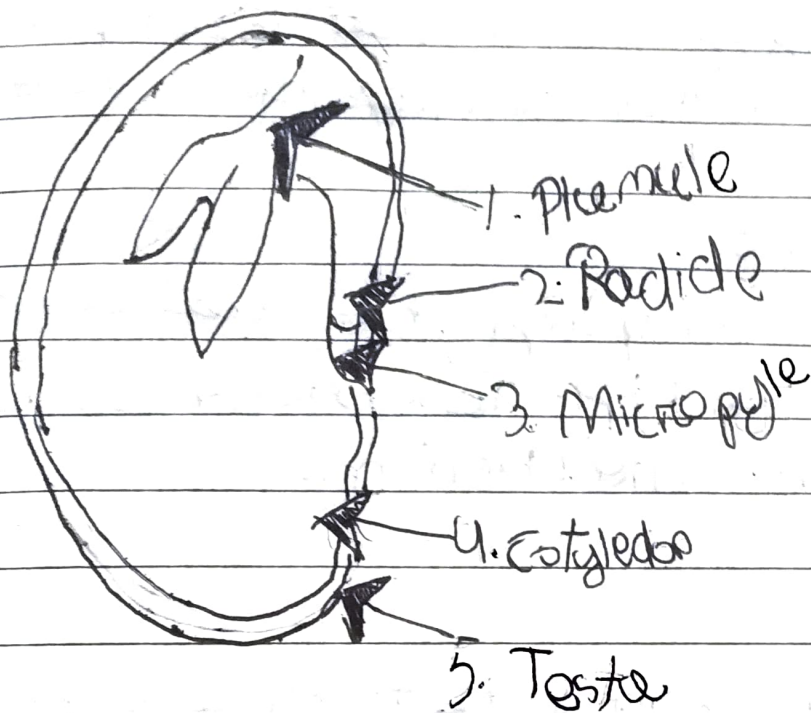 1. Plumule
2. Radicle
3. Micropyle
4. Cotyledon
5. Testa